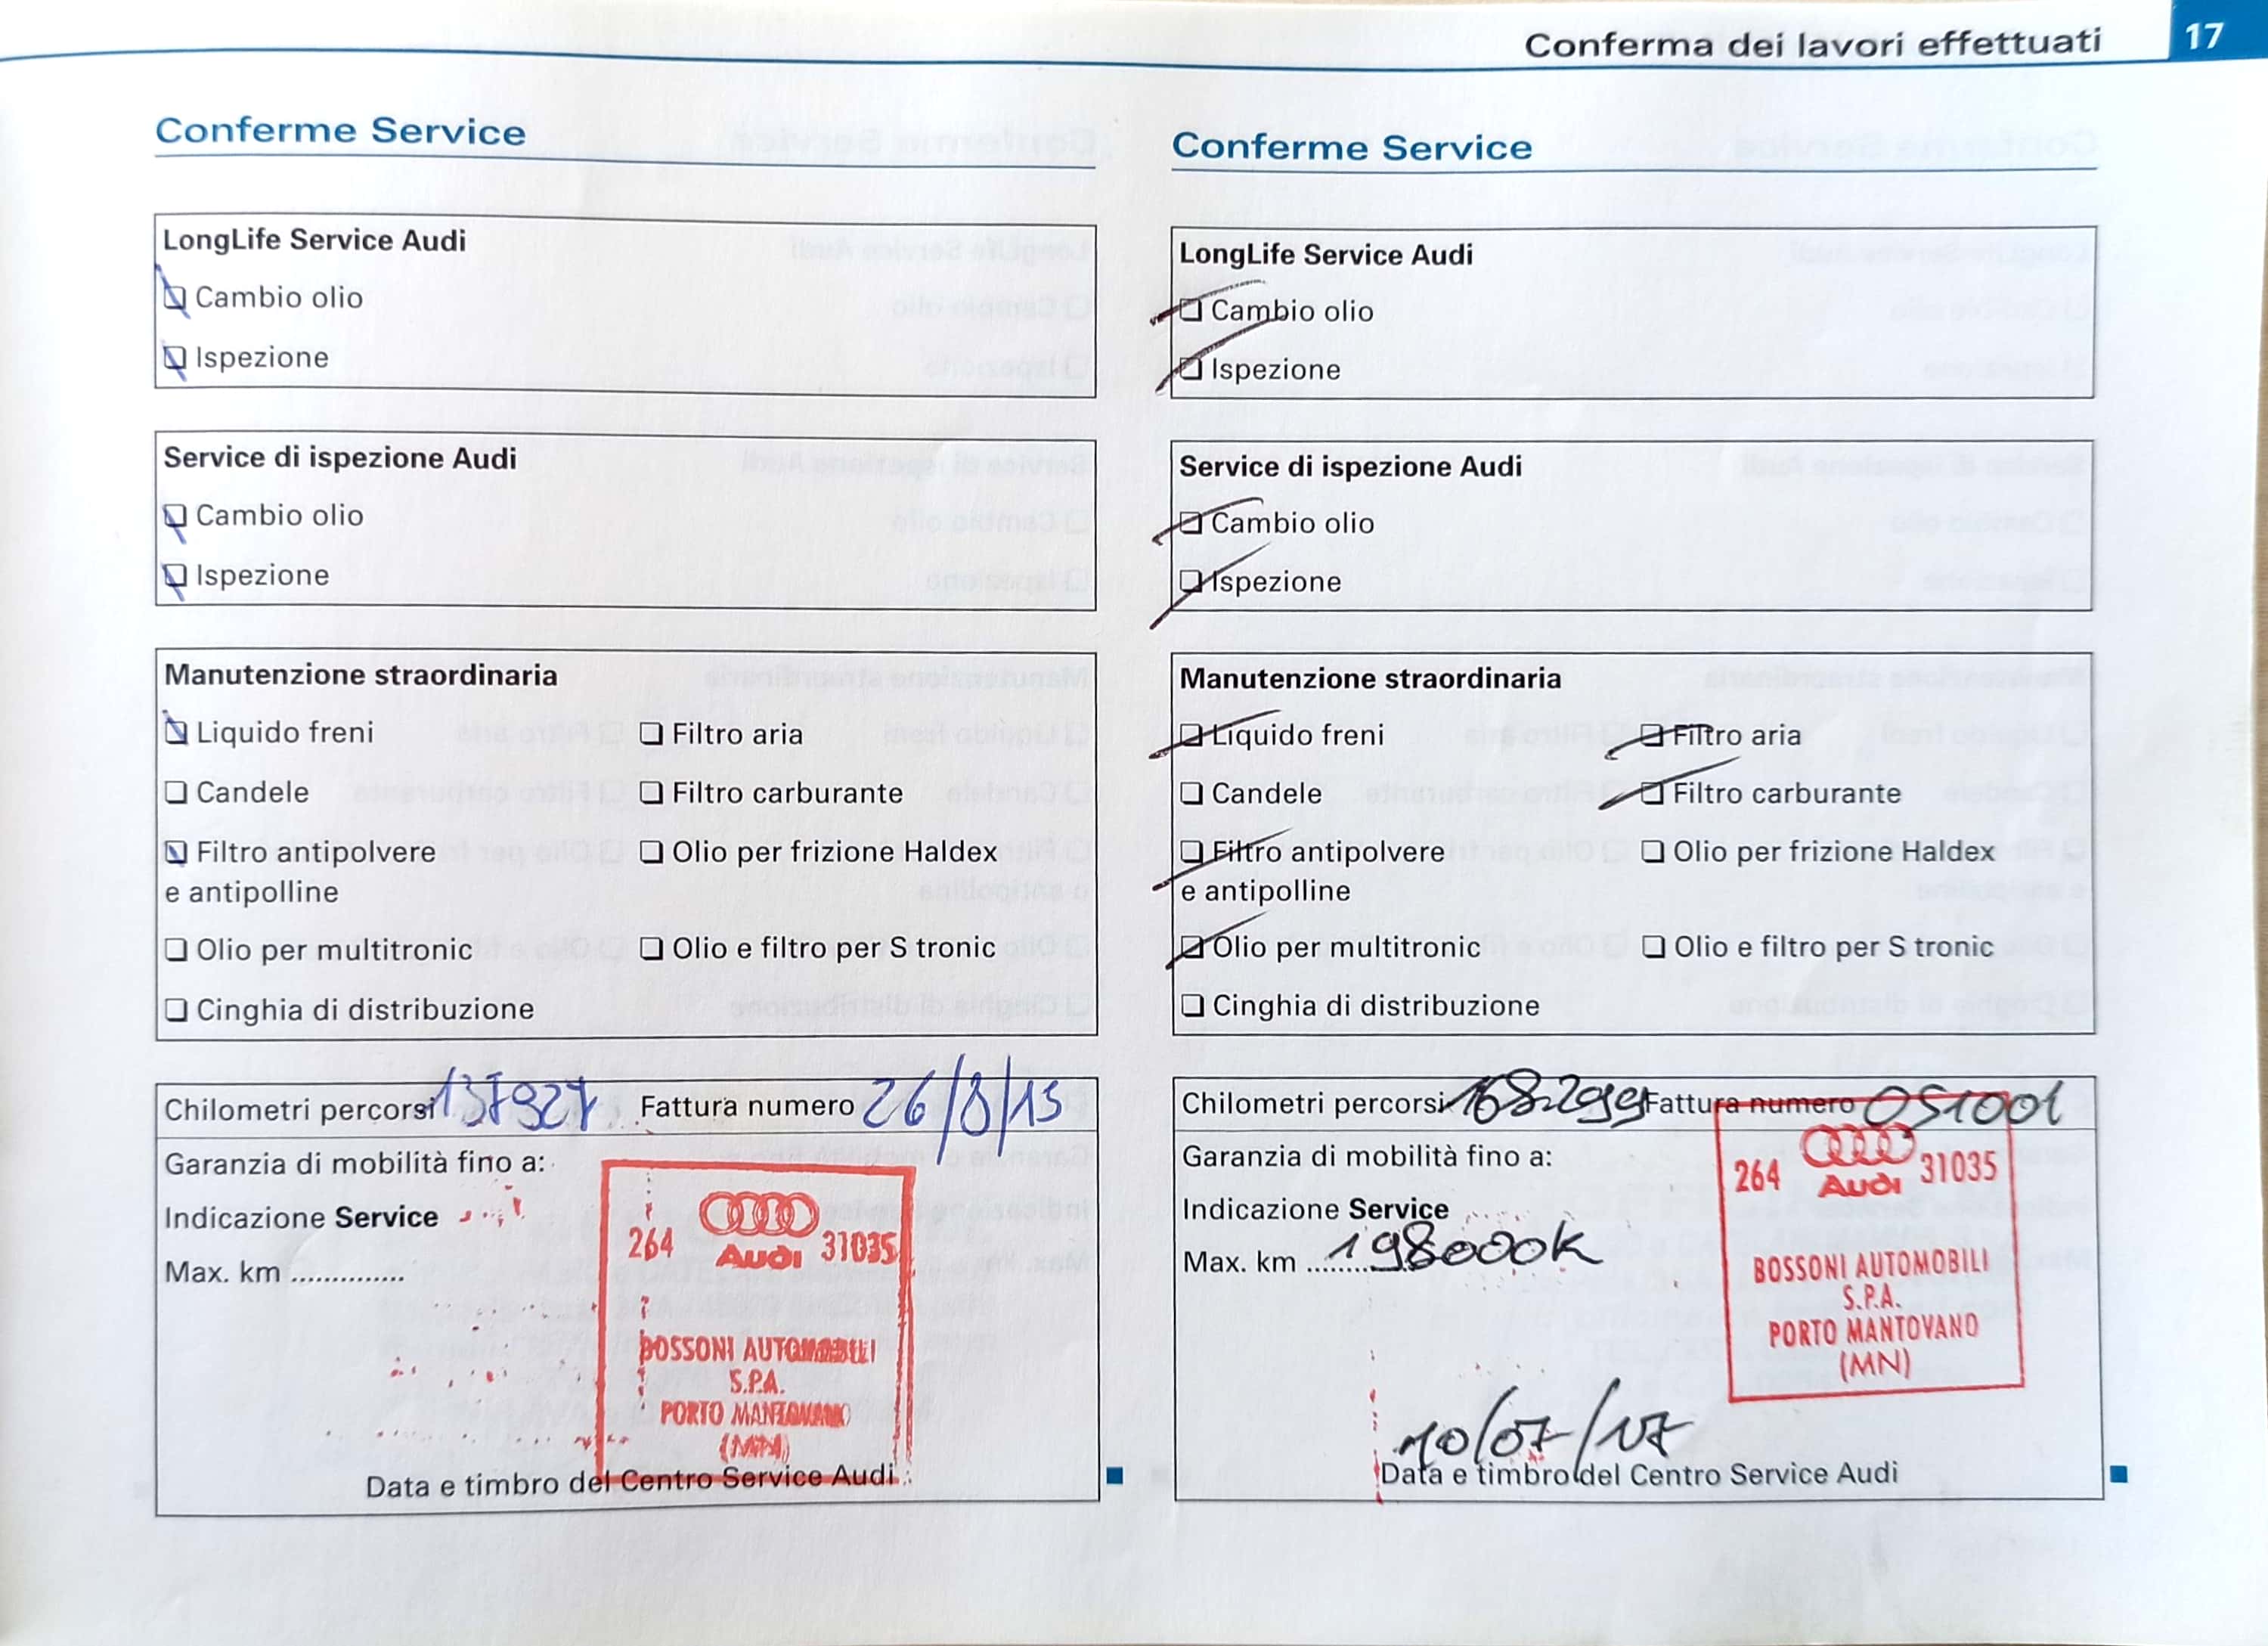 Conferma dei lavori effettuati 17
Conferme Service
LongLife Service Audi
Cambio olio
Ispezione
Service di ispezione Audi
Cambio olio
Ispezione
Manutenzione straordinaria
Liquido freni
Filtro aria
Candele
Filtro carburante
Filtro antipolvere
e antipolline
Olio per frizione Haldex
Olio per multitronic
Olio e filtro per S tronic
Cinghia di distribuzione
Chilometri percorsi 137927 Fattura numero 26/8/15
Garanzia di mobilità fino a:
Indicazione Service
Max. km ..............
264 Audi 31035
BOSSONI AUTOMOBILI
S.P.A.
PORTO MANTOVANO
(MN)
Data e timbro del Centro Service Audi
Conferme Service
LongLife Service Audi
Cambio olio
Ispezione
Service di ispezione Audi
Cambio olio
Ispezione
Manutenzione straordinaria
Liquido freni
Filtro aria
Candele
Filtro carburante
Filtro antipolvere
e antipolline
Olio per frizione Haldex
Olio per multitronic
Olio e filtro per S tronic
Cinghia di distribuzione
Chilometri percorsi 168299 Fattura numero 051001
Garanzia di mobilità fino a:
Indicazione Service
Max. km 198000K
264 Audi 31035
BOSSONI AUTOMOBILI
S.P.A.
PORTO MANTOVANO
(MN)
10/07/17
Data e timbro del Centro Service Audi